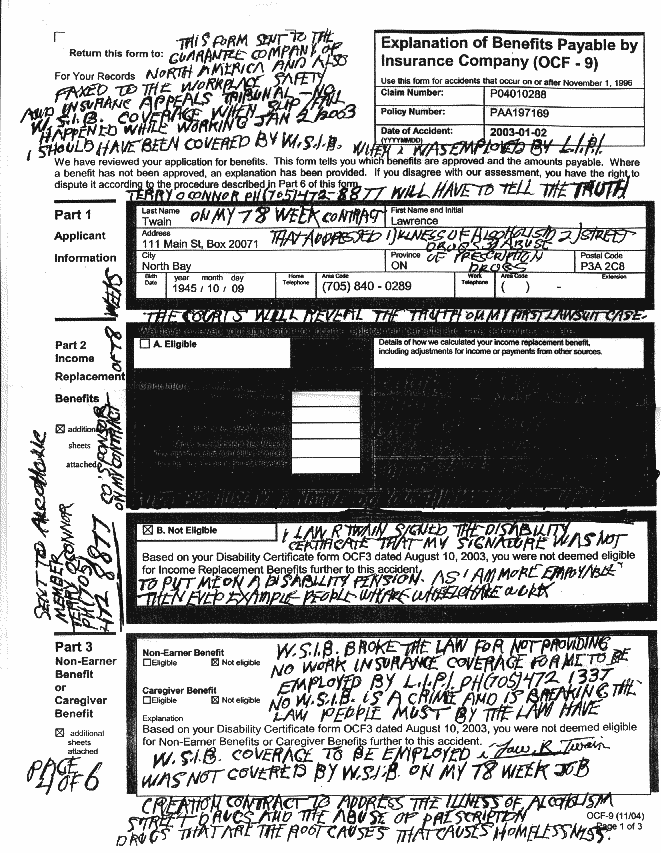 THIS FORM SENT TO THE
Return this form to: GUARANTEE COMPANY OF
For Your Records NORTH AMERICA AND ALSO
FAXED TO THE WORKPLACE SAFETY
AND INSURANC APPEALS TRIBUNAL - NO
W.S.I.B. COVERAGE WHEN SLIP/FALL
HAPPENED WHILE WORKING JAN 2/2003
I SHOULD HAVE BEEN COVERED BY W.S.I.B. WHEN I WAS EMPLOYED BY L.I.P.I.
Explanation of Benefits Payable by
Insurance Company (OCF - 9)
Use this form for accidents that occur on or after November 1, 1996
Claim Number: P04010288
Policy Number: PAA197169
Date of Accident: 2003-01-02
(YYYYMMDD)
We have reviewed your application for benefits. This form tells you which benefits are approved and the amounts payable. Where
a benefit has not been approved, an explanation has been provided. If you disagree with our assessment, you have the right to
dispute it according to the procedure described in Part 6 of this form.
TERRY O CONNOR PH(705)472-8877 WILL HAVE TO TELL THE TRUTH
Part 1
Applicant
Information
Last Name ON MY 78 WEEK CONTRACT First Name and Initial
Twain Lawrence
Address THAT ADDRESSED 1) ILLNESS OF ALCOHOLISM 2) STREET
111 Main St, Box 20071 DRUGS 3) ABUSE
City Province OF PRESCRIPTION Postal Code
North Bay ON DRUGS P3A 2C8
Birth Date year month day Home Telephone Area Code Work Telephone Area Code Extension
1945 / 10 / 09 (705) 840 - 0289 ( ) -
THE COURTS WILL REVEAL THE TRUTH ON MY FIRST LAWSUIT CASE.
Part 2
Income
Replacement
Benefits
☒ additional
sheets
attached
OF 78 WEEKS
CO SPONSOR
ON MY CONTRACT
SENT TO ALCOHOLIC
MEMBER
TERRY O'CONNOR
PH(705)
472 8877
☐ A. Eligible
Details of how we calculated your income replacement benefit,
including adjustments for income or payments from other sources.
☒ B. Not Eligible
I LAW R TWAIN SIGNED THE DISABILITY
CERTIFICATE THAT MY SIGNATURE WAS NOT
Based on your Disability Certificate form OCF3 dated August 10, 2003, you were not deemed eligible
for Income Replacement Benefits further to this accident.
TO PUT ME ON A DISABILITY PENSION. AS I AM MORE EMPLOYABLE
THEN EVER EXAMPLE PEOPLE WHEELCHAIR WORK
Part 3
Non-Earner
Benefit
or
Caregiver
Benefit
☒ additional
sheets
attached
PAGE
1 OF 6
Non-Earner Benefit
☐ Eligible ☒ Not eligible
Caregiver Benefit
☐ Eligible ☒ Not eligible
Explanation
W.S.I.B. BROKE THE LAW FOR NOT PROVIDING
NO WORK INSURANCE COVERAGE FOR ME TO BE
EMPLOYED BY L.I.P.I PH(705)472 1337
NO W.S.I.B. IS A CRIME AND IS BREAKING THE
LAW PEOPLE MUST BY THE LAW HAVE
Based on your Disability Certificate form OCF3 dated August 10, 2003, you were not deemed eligible
for Non-Earner Benefits or Caregiver Benefits further to this accident.
W.S.I.B. COVERAGE TO BE EMPLOYED Law R Twain
WAS NOT COVERED BY W.S.I.B. ON MY 78 WEEK JOB
CREATION CONTRACT TO ADDRESS THE ILLNESS OF ALCOHOLISM
STREET DRUGS AND THE ABUSE OF PRESCRIPTION
DRUGS THAT ARE THE ROOT CAUSES THAT CAUSES HOMELESSNESS.
OCF-9 (11/04)
Page 1 of 3